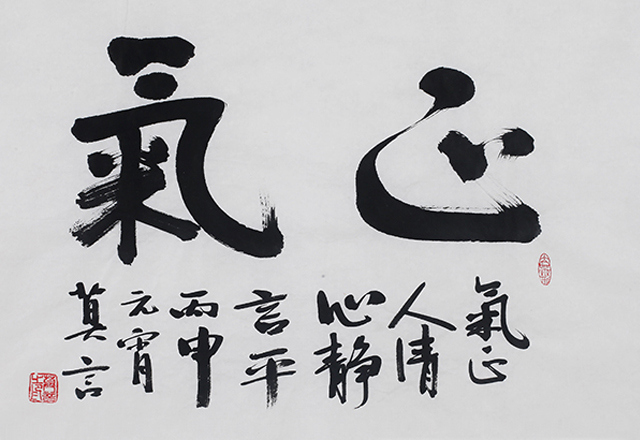 正氣
氣正
人清
心靜
言平
丙申
元宵
莫言